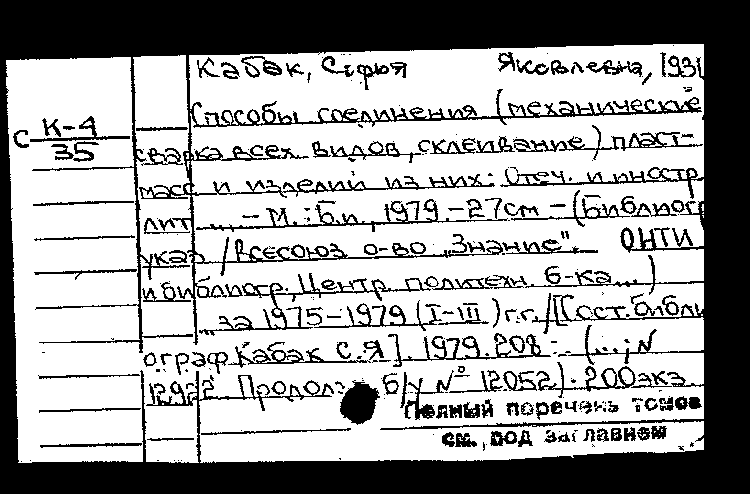 Кабак, Софья Яковлевна, 1931
С К-4
35
Способы соединения (механические,
сварка всех видов, склеивание) пласт-
масс и изделий из них: Отеч. и иностр
лит ... - М.: Б.и., 1979. - 27см - (Библиогр
указ / Всесоюз о-во "Знание". ОНТИ
и библиогр., Центр. политехн. б-ка...)
...за 1975-1979 (I-III) г.г. / [Сост. библи
ограф Кабак С.Я]. 1979. 208 (...; N
12922 Продолж б/у № 12052). 200экз
Полный поречень томов
см. под заглавием